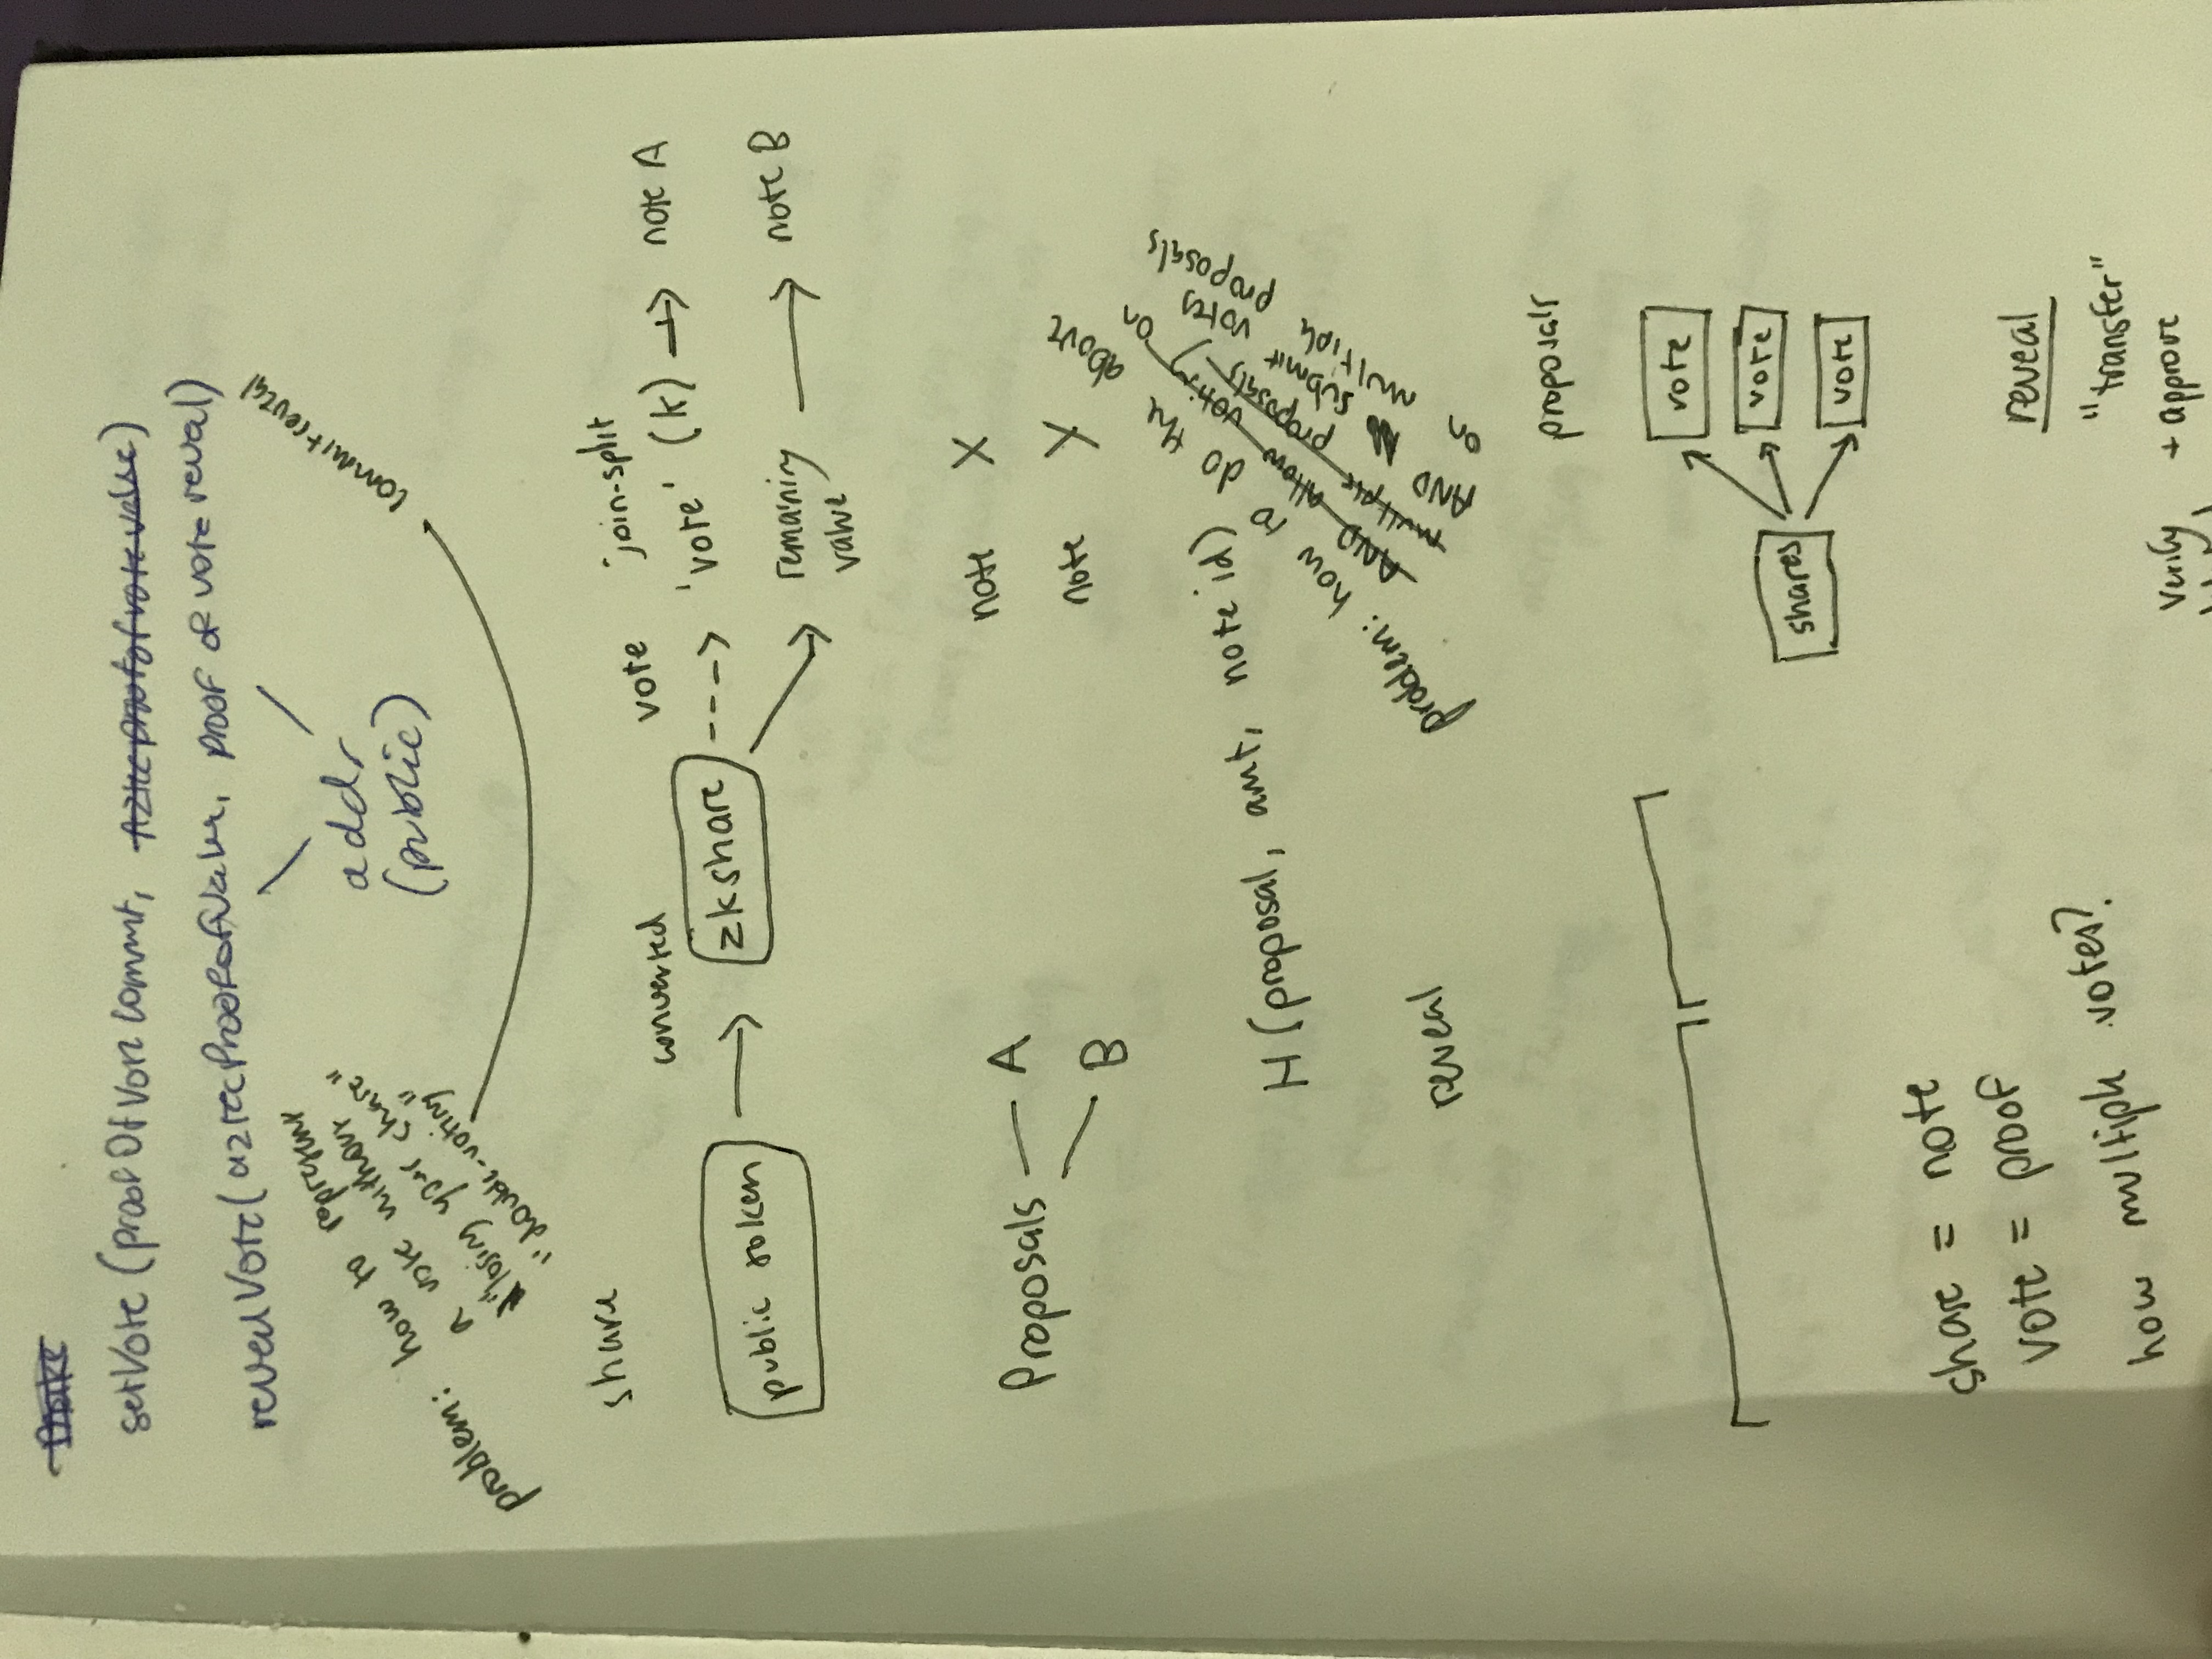 setVote (proof Of Vote Commit, Aztec proof of vote value)
revealVote (aztecProofOfValue, proof of vote reveal)
addr
(public)
commit+reveal
problem: how to represent
a vote without
"losing your share"
"double-voting"
share
converted
vote
join-split
public token → zkshare
'vote' (k) → note A
remaining
value
note B
Proposals
A
B
note X
note X
H (proposal, amt, note id)
problem: how to do the above
AND allow voting on
multiple proposals
AND submit votes
on multiple proposals
reveal
proposals
shares
vote
vote
vote
share = note
vote = proof
how multiple votes?
reveal
"transfer"
+ approve
verify